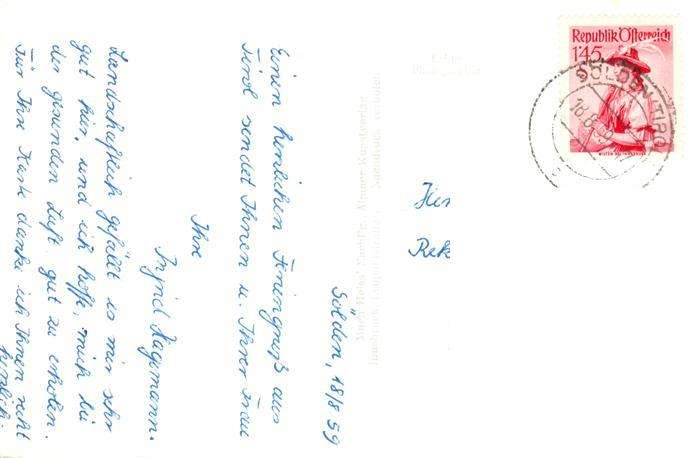 Sölden, 18/8 59
Einen herzlichen Feriengruß aus
Tirol sendet Ihnen u. Ihrer Frau
Ihre
Ingrid Hagemann.
Landschaftlich gefällt es mir sehr
gut hier, und ich hoffe, mich bei
der gesunden Luft gut zu erholen.
Für Ihre Karte danke ich Ihnen recht
herzlich.
Republik Österreich
1'45
SÖLDEN TIROL
18.8.59
Her
Rek
Innsbruck